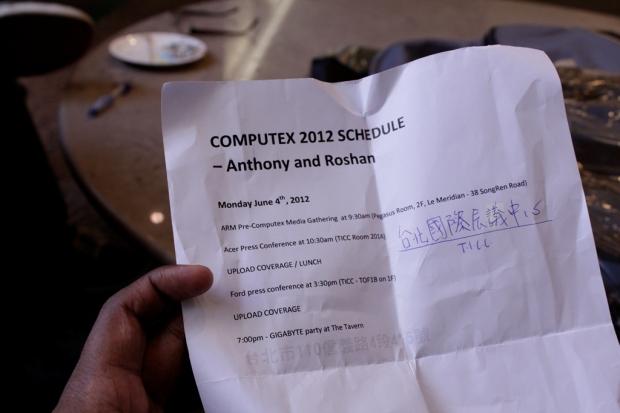 COMPUTEX 2012 SCHEDULE
– Anthony and Roshan
Monday June 4th, 2012
ARM Pre-Computex Media Gathering at 9:30am (Pegasus Room, 2F, Le Meridien - 38 SongRen Road)
Acer Press Conference at 10:30am (TICC Room 201A)
台北國際會議中心
TICC
UPLOAD COVERAGE / LUNCH
Ford press conference at 3:30pm (TICC - TOF1B on 1F)
UPLOAD COVERAGE
7:00pm - GIGABYTE party at The Tavern